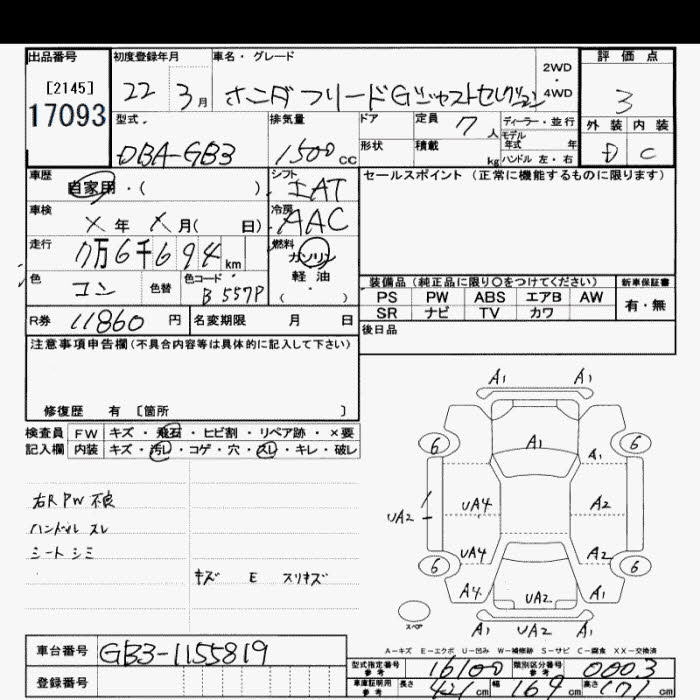 出品番号
[2145]
17093
初度登録年月
22 3月
車名・グレード
ホンダ フリードGジャストセレクション
2WD
・4WD
評価点
3
外装 内装
D C
型式
DBA-GB3
排気量
1500cc
ドア
定員 7人
ディーラー・並行
モデル年式 年
形状
積載 kg
ハンドル 左・右
車歴
自家用・( )
シフト
IAT
セールスポイント (正常に機能するものに限ります)
車検
X年 X月( 日)
冷房
AAC
走行
7万6千694km
燃料
ガソリン
軽油
( ・ )
色
コン
色替
色コード
B557P
装備品(純正品に限り〇をつけてください)
新車保証書
PS PW ABS エアB AW
有・無
SR ナビ TV カワ
R券 11860円
名変期限 月 日
後日品
注意事項申告欄(不具合内容等は具体的に記入して下さい)
修復歴 有 〔箇所 〕
検査員 FW キズ・飛石・ヒビ割・リペア跡・×要
記入欄 内装 キズ・汚レ・コゲ・穴・スレ・キレ・破レ
右R PW 不良
ハンドル スレ
シート シミ
キズ E スリキズ
A1 A1
6 A1 A1 6
UA2 UA4 A2
6 UA4 A2 6
A4 UA2 A1
スペア
A1 UA2 A1
A-キズ E-エクボ U-凹み W-補修跡 S-サビ C-腐食 XX-交換済
車台番号 GB3-1155819
登録番号
型式指定番号 参考 16100
類別区分番号 参考 0003
車庫証明用 参考 長さ 421cm 幅 169cm 高さ 171cm